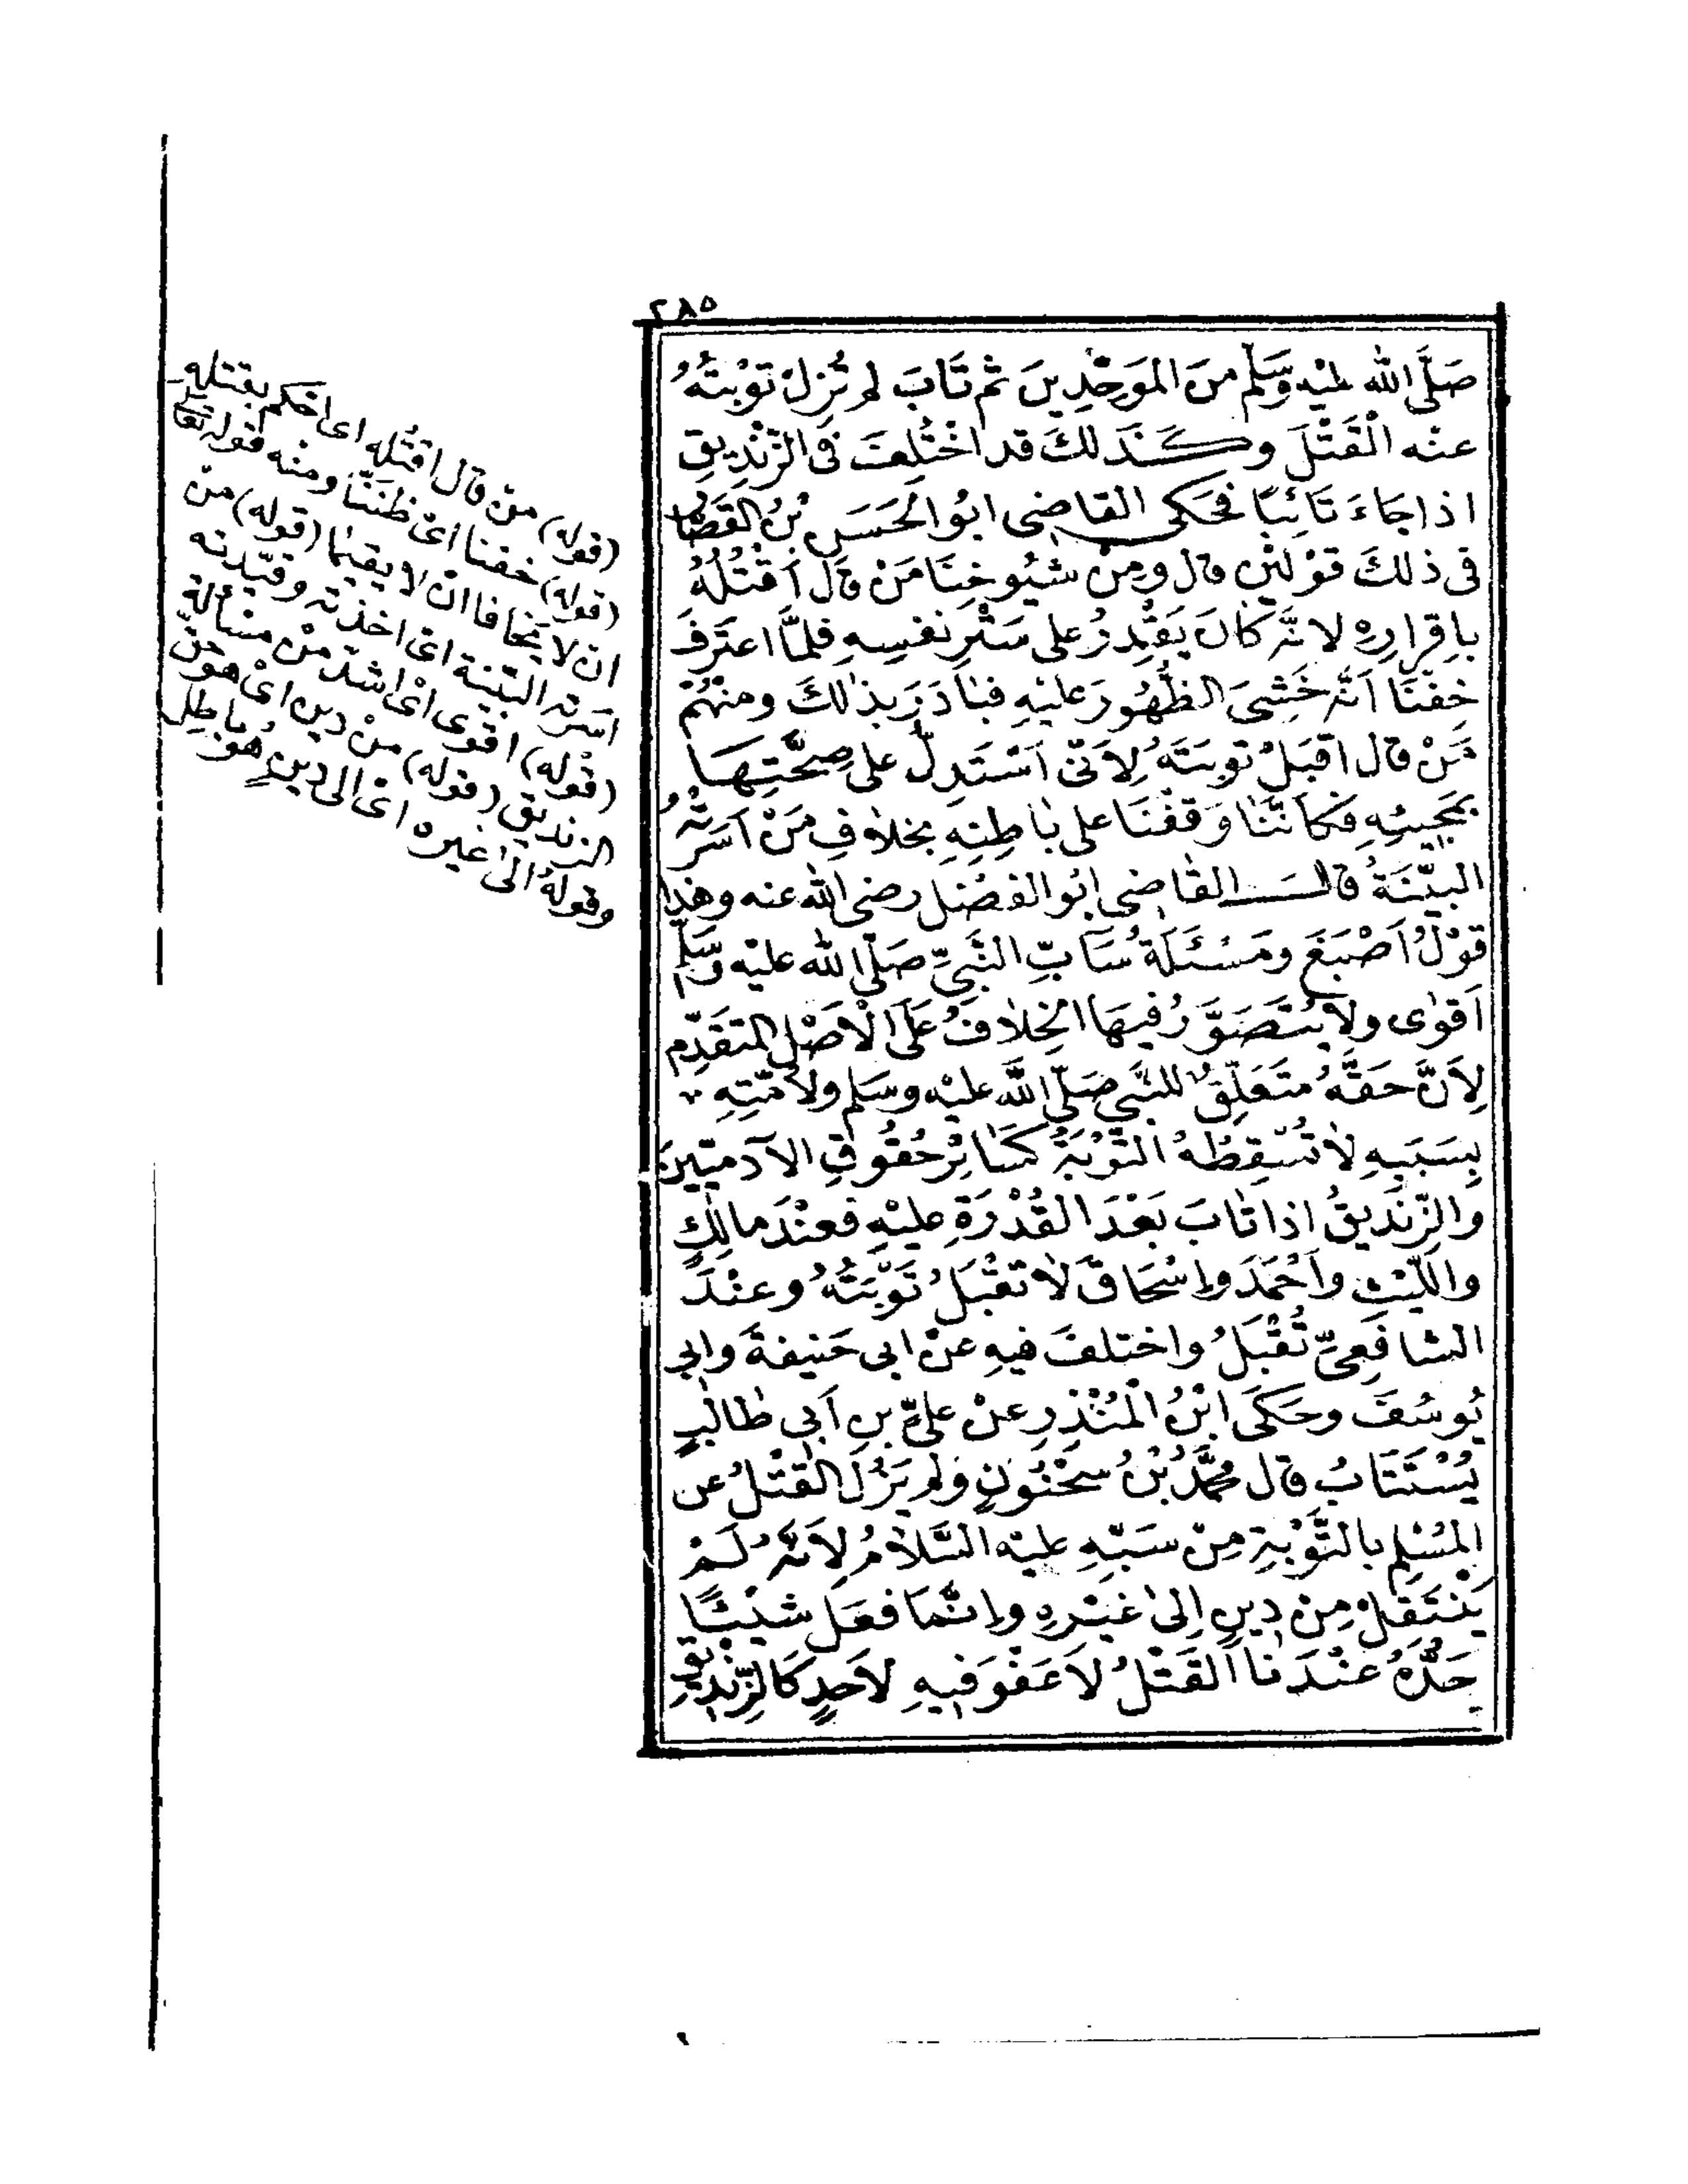 ٢٨٥
صَلَّى الله عليْهِ وَسَلَّم مِنَ المُوَحِّدِينَ ثم تَابَ لم تُزِلْ تَوْبَتُهُ
عنْه الْقَتْلَ وكَذَلكَ قد اخْتُلِفَ فى الزِّنْدِيقِ
اذا جَاءَ تَائِبًا فَحَكى القاضِى ابُو الحَسَنِ بْنُ القَصَّار
فى ذلكَ قوْليْنِ قال ومِنْ شُيُوخِنَا مَنْ قال اَقْتُلُهُ
باِقرارِهِ لانَّه كانَ يَقْدِرُ على سَتْرِ نفسِهِ فلمَّا اعتَرَفَ
خِفْنَا اَنَّه خَشِىَ الظُّهُورَ عليْهِ فبَادَرَ بذٰلكَ ومنْهُمْ
مَنْ قال اقْبَلُ توبَتَهُ لِاَنّى اَسْتَدِلُّ على صِحَّتِهَا
بمَجِيئِهِ فكاَنَّنَا وَقفْنَا على بٰاطِنِهِ بخلافِ مَنْ اَسَرَتْهُ
البيّنَةُ قال القٰاضِى ابُو الفَضْل رضى الله عنه وهٰذا
قَوْلُ اَصْبَغَ ومَسْئَلَةُ سَابِّ النَّبِىِّ صَلَّى الله عليْه وَسَلّم
اَقوٰى ولا يُتَصَوَّرُ فيهَا الخِلافُ عَلَى الْاَصْلِ المتقَدِّم
لِاَنَّ حَقَّهُ مُتَعَلِّقٌ للنَّبِى صَلَّى اللهُ عليْه وسَلم ولاُمَّتِهِ
بِسَبَبِهِ لاٰ تُسْقِطُهُ التَّوْبَةُ كسَائِرِ حُقُوقِ الآدميّينَ
والزِّنْدِيقُ اذا تٰابَ بَعْدَ القُدْرَةِ عليْهِ فعنْدَ مالِكٍ
واللّيْثِ واَحْمَدَ واِسْحَاقَ لاٰ تقْبَلُ تَوْبَتُهُ وعنْدَ
الشافعِىِّ تُقْبَلُ واختلفَ فيهِ عنْ ابى حَنيفةَ وابى
يُوسُفَ وحَكَى ابْنُ الْمُنْذِرِ عنْ علىّ بنِ اَبى طٰالبٍ
يُسْتَتَابُ قال محمَّدُ بْنُ سحْنُونٍ ولم يَزُلِ القتْلُ عن
المُسْلِمِ بالتَّوْبَةِ مِنْ سَبِّهِ عليْه السَّلاٰمُ لِاَنَّهُ لَمْ
يَنْتَقِلْ مِنْ دِينٍ اِلىٰ غَيْرِهِ واِنَّمَا فعَلَ شيْئًا
حَدُّهُ عنْدَنَا القَتْلُ لاَ عَفْوَ فيهِ لاَحَدٍ كَالزِّنْدِيقِ
(قوله) منْ قال اقتُله اى احْكم بقتله
(قوله) خفنا اىْ ظنَنّا ومنْه قوله تعالى
ان لا يخافا انْ لا يقيما (قوله) منْ
اسرته البيّنة اىْ اخذته وقيّدته
(قوله) اقوى اىْ اشدّ منْ مسألة
الزنديق (قوله) منْ دين اىْ هو حقّ
وقولهُ الىٰ غيره اىْ الى دينٍ هُوَ باطل